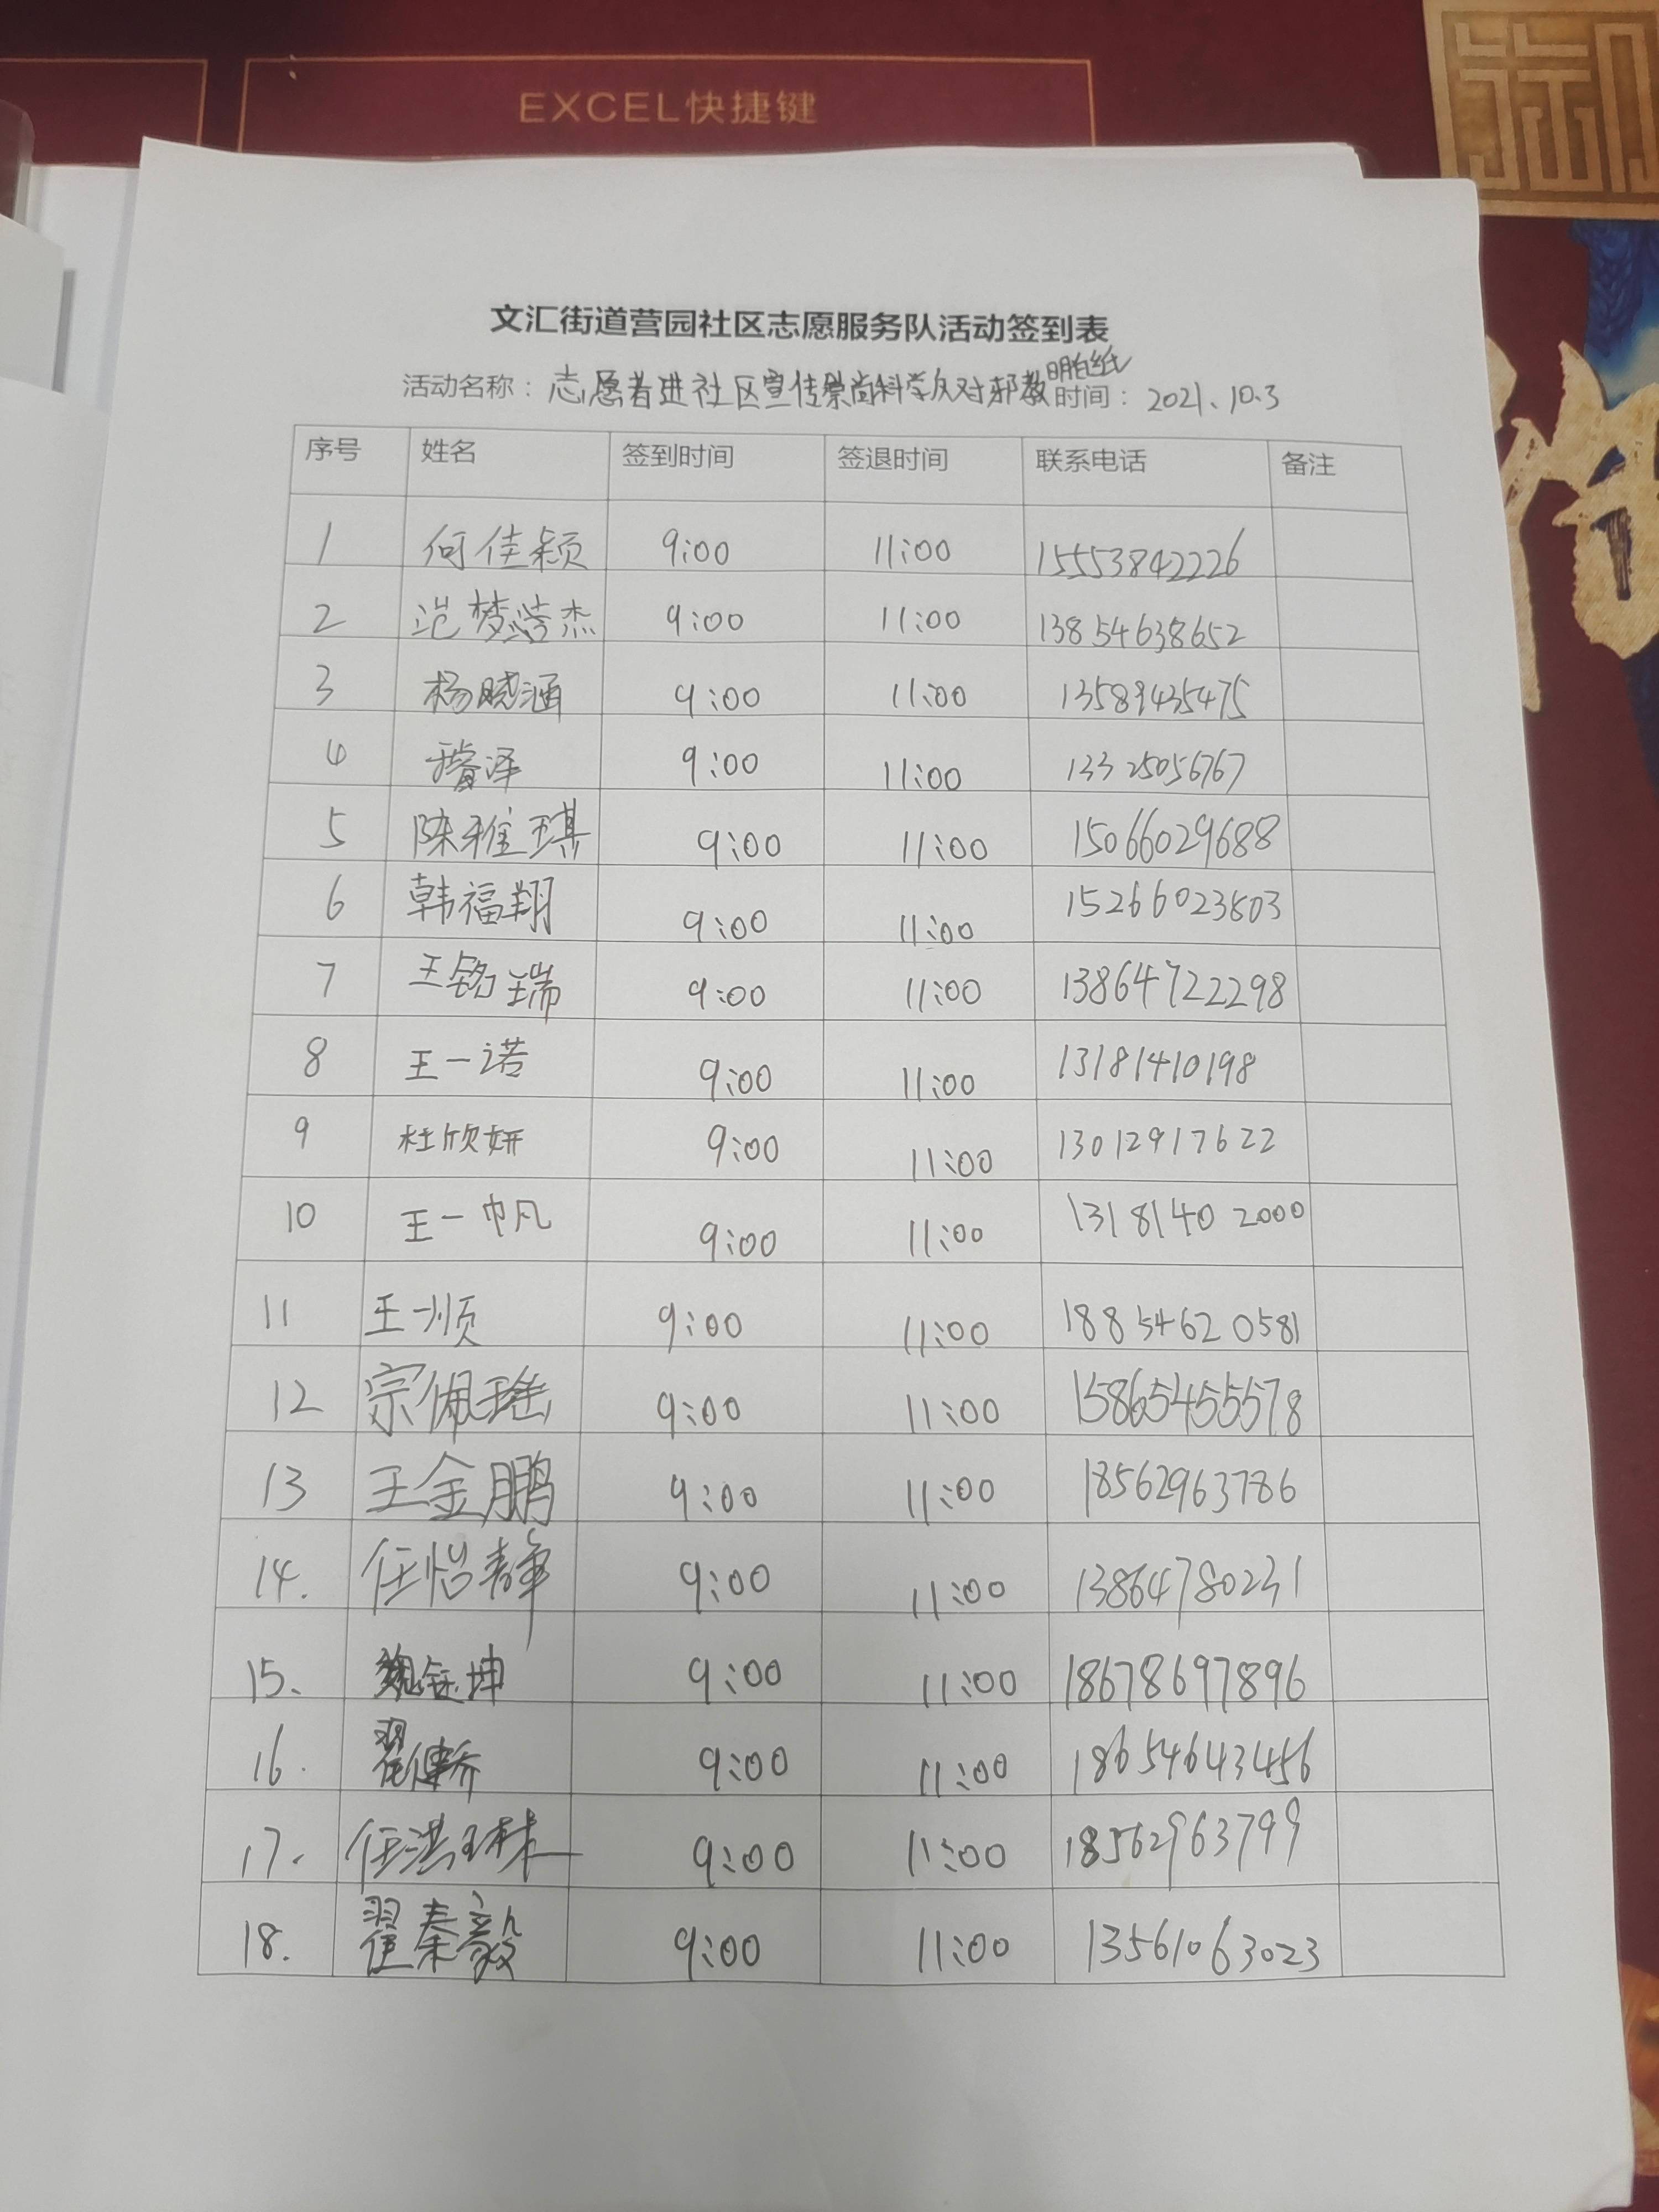 EXCEL快捷键
文汇街道营园社区志愿服务队活动签到表
活动名称：志愿者进社区宣传崇尚科学反对邪教明白纸 时间：2021.10.3
序号 姓名 签到时间 签退时间 联系电话 备注
1 何佳颖 9:00 11:00 15553842226
2 范梦浩杰 9:00 11:00 13854638652
3 杨晓涵 9:00 11:00 13589435475
4 睿泽 9:00 11:00 13325056767
5 陈雅琪 9:00 11:00 15066029688
6 韩福翔 9:00 11:00 15266023803
7 王铭瑞 9:00 11:00 13864722298
8 王一诺 9:00 11:00 13181410198
9 杜欣妍 9:00 11:00 13012917622
10 王一帆 9:00 11:00 13181402000
11 王一顺 9:00 11:00 18854620581
12 宗佩瑶 9:00 11:00 15865455578
13 王金鹏 9:00 11:00 18562963786
14. 任怡静 9:00 11:00 13864780231
15. 魏钰坤 9:00 11:00 18678697896
16. 翟健乔 9:00 11:00 18654643456
17. 任洪琳 9:00 11:00 18562963799
18. 翟秦毅 9:00 11:00 13561063023